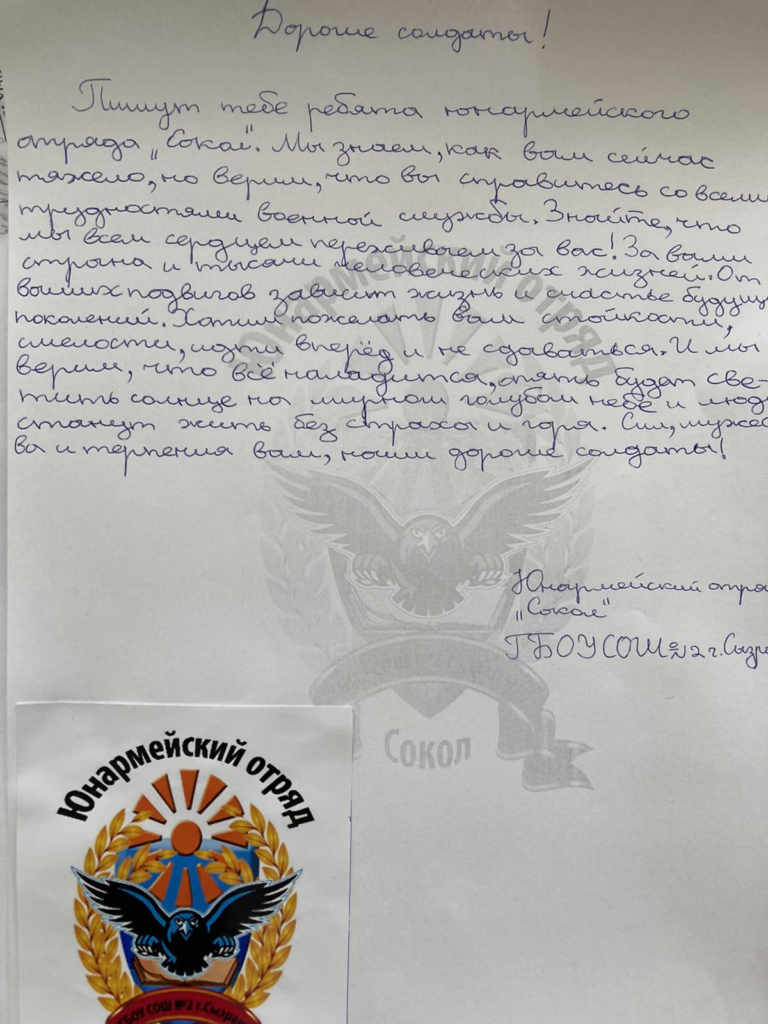 Дорогие солдаты!
Пишут тебе ребята юнармейского
отряда „Сокол". Мы знаем, как вам сейчас
тяжело, но верим, что вы справитесь со всеми
трудностями военной службы. Знайте, что
мы всем сердцем переживаем за вас! За вами
страна и тысячи человеческих жизней. От
ваших подвигов зависит жизнь и счастье будущи
поколений. Хотим пожелать вам стойкости,
смелости, идти вперёд и не сдаваться. И мы
верим, что всё наладится, опять будет све-
тить солнце на мирном голубом небе и люд
станут жить без страха и горя. Сил, мужес
ва и терпения вам, наши дорогие солдаты!
Юнармейский отряд
Юнармейский отря
„Сокол"
ГБОУ СОШ №2 г. Сызра
Сокол
Юнармейский отряд
ГБОУ СОШ №2 г.Сызран